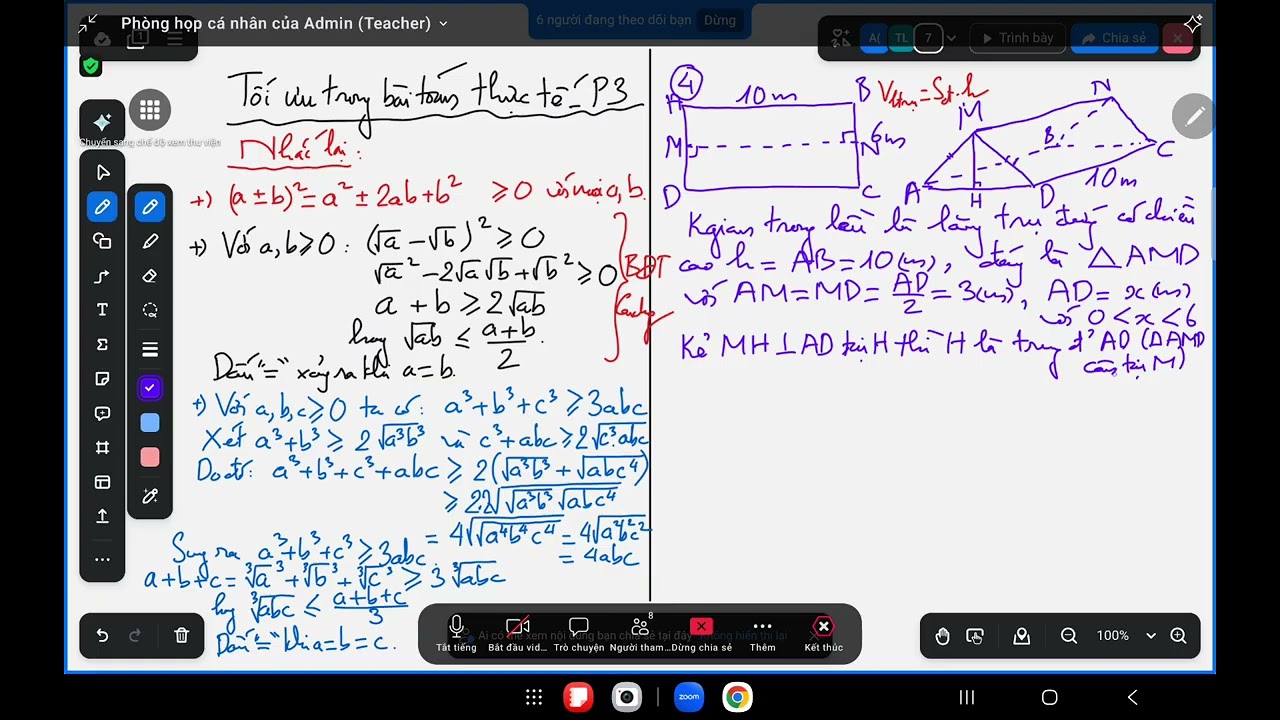 Phòng họp cá nhân của Admin (Teacher)
6 người đang theo dõi bạn
Dừng
A(
TL
7
Trình bày
Chia sẻ
Chuyển sang chế độ xem thư viện
Tối ưu trong bài toán thực tế - P3
Nhắc lại:
+) (a ± b)² = a² ± 2ab + b² ≥ 0 với mọi a, b.
+) Với a, b ≥ 0 : (√a − √b)² ≥ 0
√a² − 2√a√b + √b² ≥ 0
a + b ≥ 2√ab
hay √ab ≤ (a+b)/2.
Dấu "=" xảy ra khi a = b.
BĐT
Cauchy
+) Với a, b, c ≥ 0 ta có: a³ + b³ + c³ ≥ 3abc
Xét a³ + b³ ≥ 2√a³b³ và c³ + abc ≥ 2√c³.abc
Do đó: a³ + b³ + c³ + abc ≥ 2(√a³b³ + √abc⁴)
≥ 2.2√(√a³b³ √abc⁴)
= 4√√a⁴b⁴c⁴ = 4√a²b²c²
= 4abc
Suy ra a³ + b³ + c³ ≥ 3abc.
a + b + c = ∛a³ + ∛b³ + ∛c³ ≥ 3∛abc
hay ∛abc ≤ (a+b+c)/3
Dấu "=" khi a = b = c.
④
A 10m B
M N 6m
D C
V = Sđ.h
M N
B
A H D C
10m
Kgian trong lều là lăng trụ đứng có chiều
cao h = AB = 10 (m), đáy là △AMD
với AM = MD = AD/2 = 3 (m), AD = x (m)
với 0 < x < 6
Kẻ MH ⊥ AD tại H thì H là trung đ' AD (△AMD
cân tại M)
100%
8
Tắt tiếng
Bắt đầu vid...
Trò chuyện
Người tham...
Dừng chia sẻ
Thêm
Kết thúc
zoom